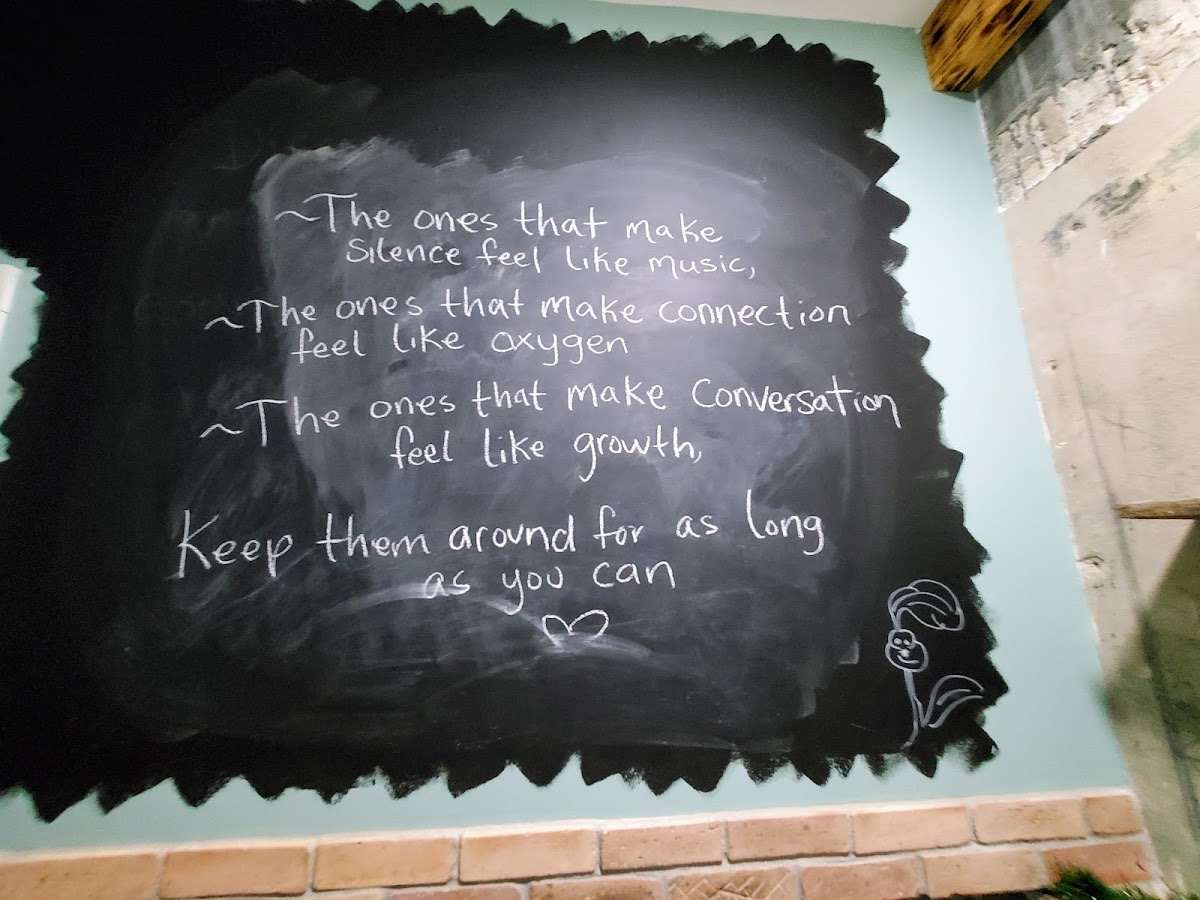 ~The ones that make
silence feel like music,
~The ones that make connection
feel like oxygen
~The ones that make Conversation
feel like growth,
Keep them around for as long
as you can